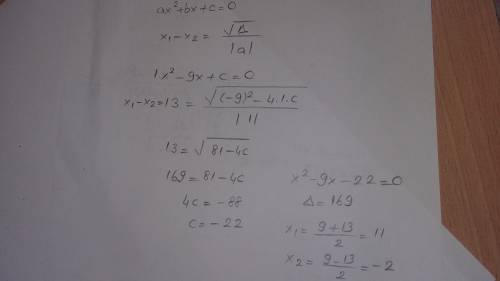 ax²+bx+c=0
x₁-x₂= √Δ / |a|
1x²-9x+c=0
x₁-x₂=13 = √((-9)²-4.1.c) / |1|
13=√(81-4c)
169=81-4c
4c=-88
c=-22
x²-9x-22=0
Δ=169
x₁= (9+13)/2 = 11
x₂= (9-13)/2 = -2